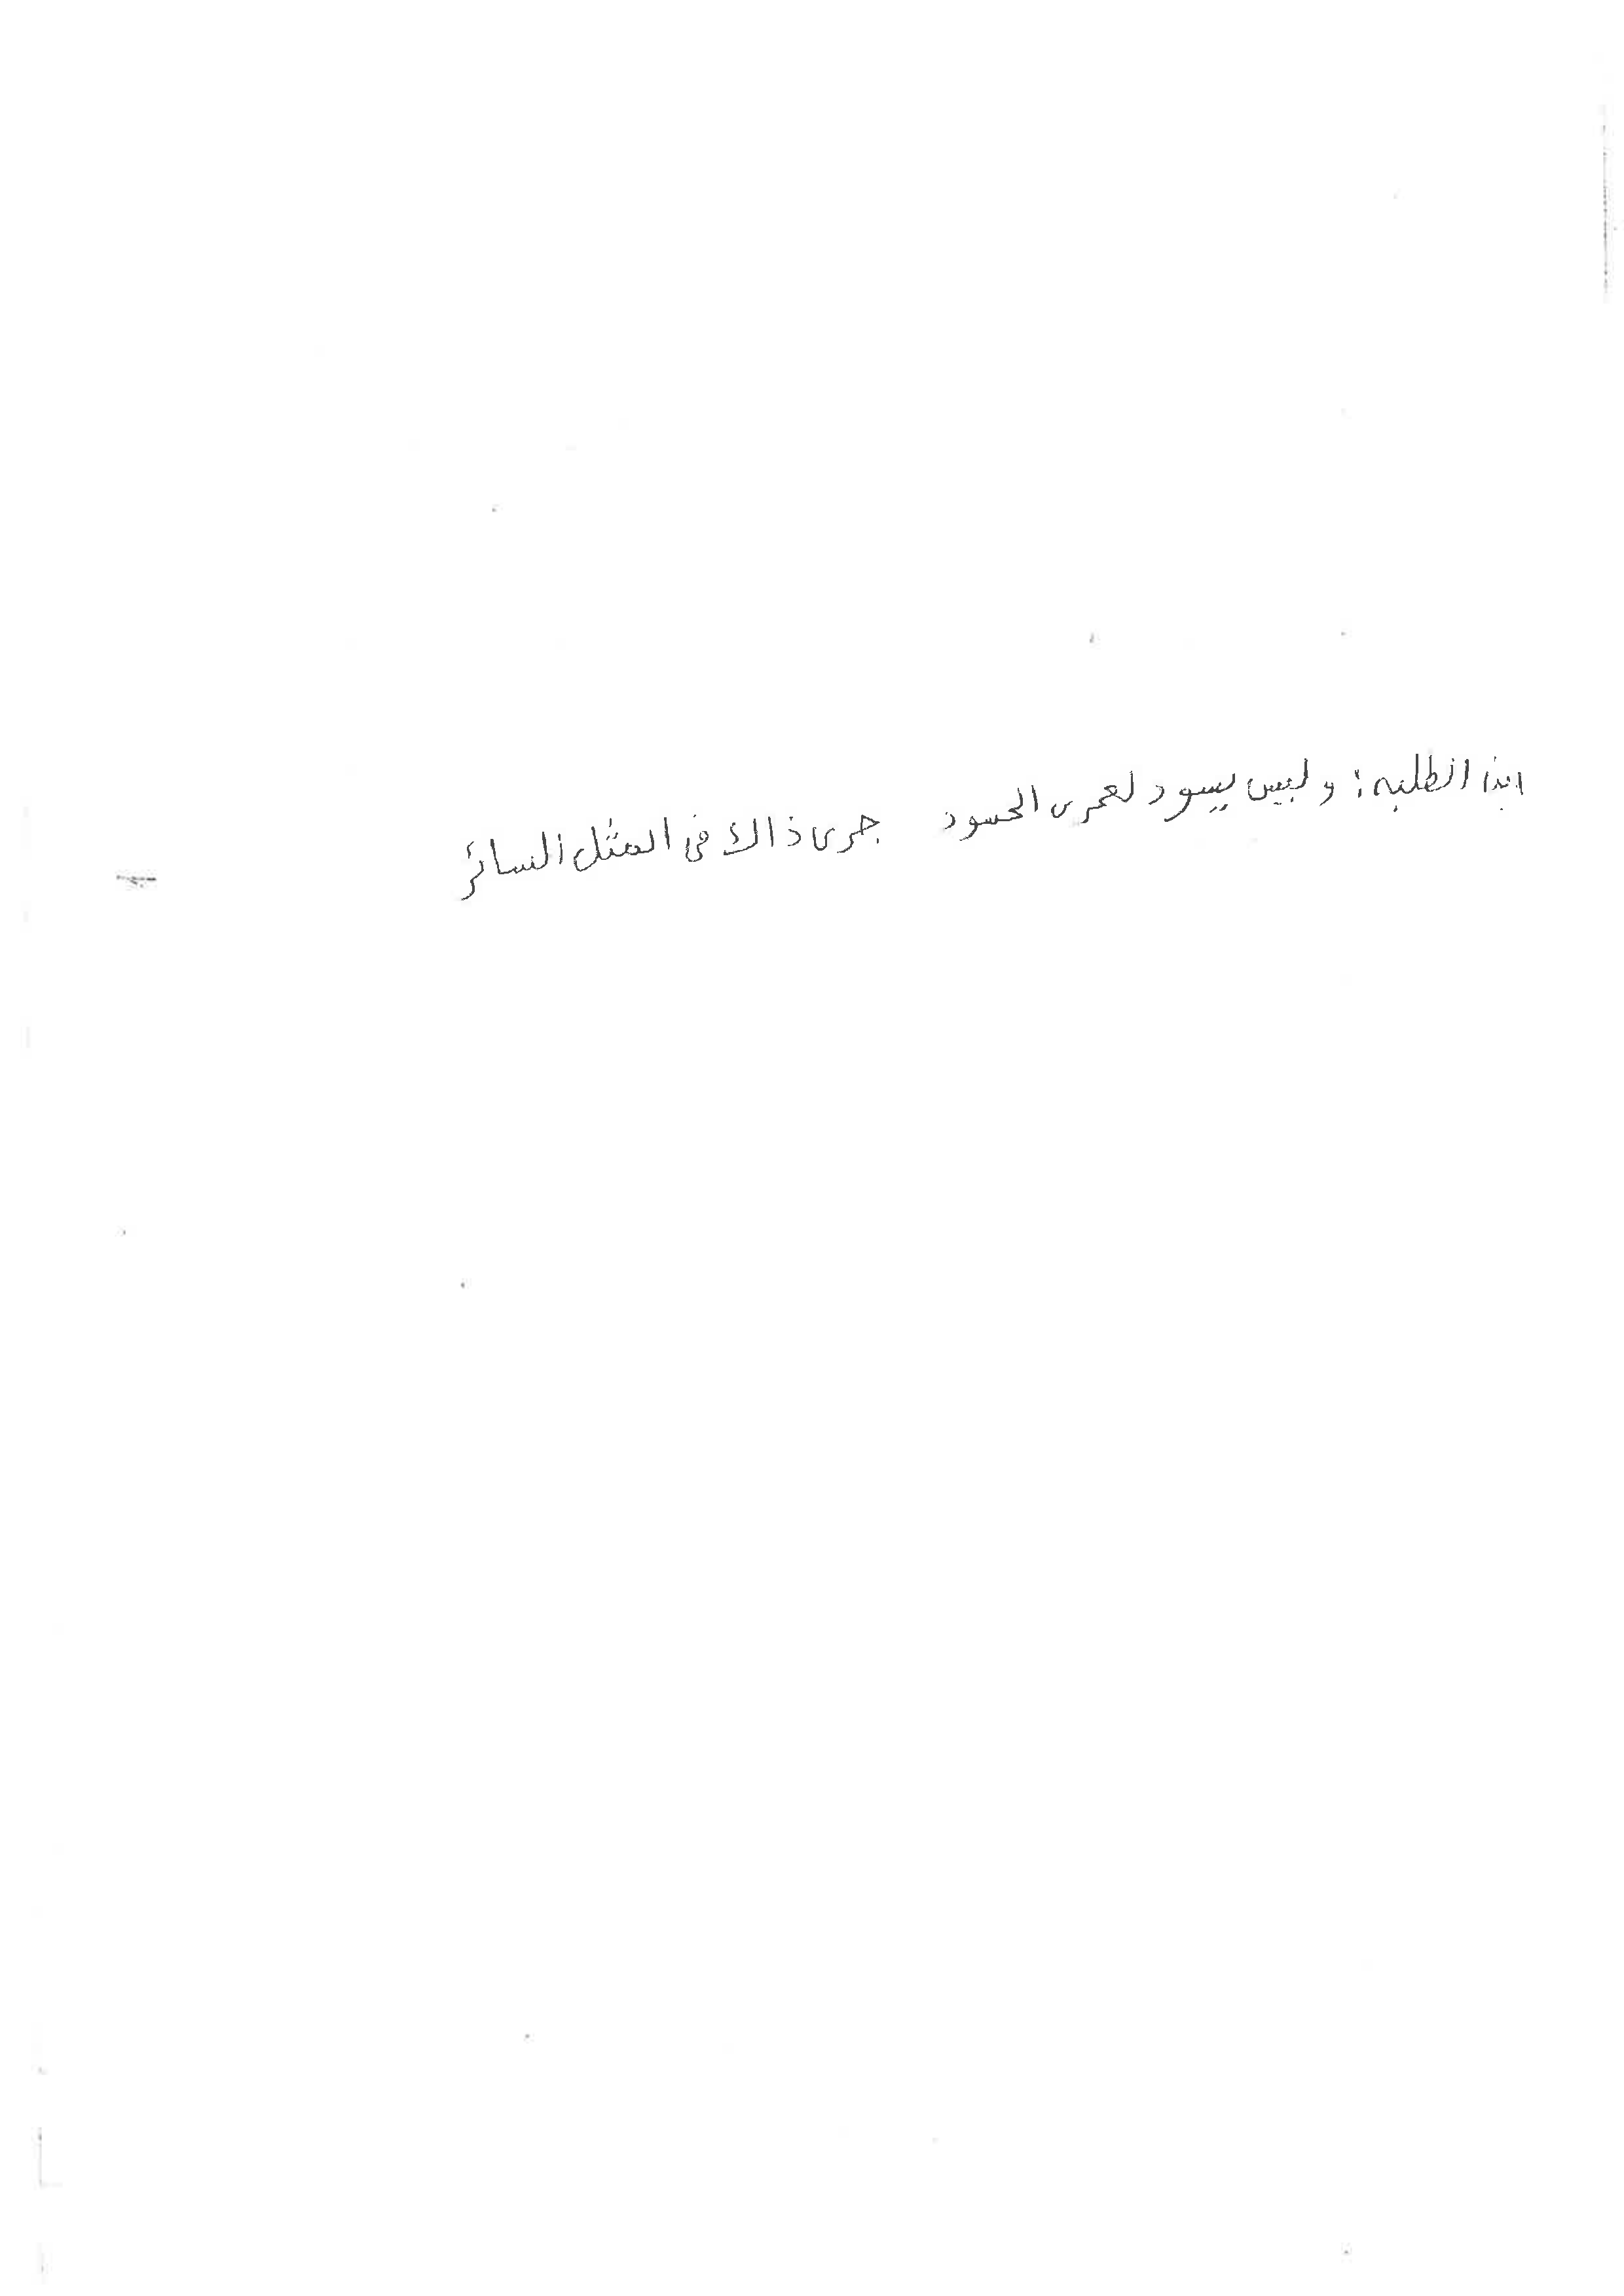 ابذا الطلبه: وليس يسود لعمرى الحسود جرى ذاك فى المثل السائر